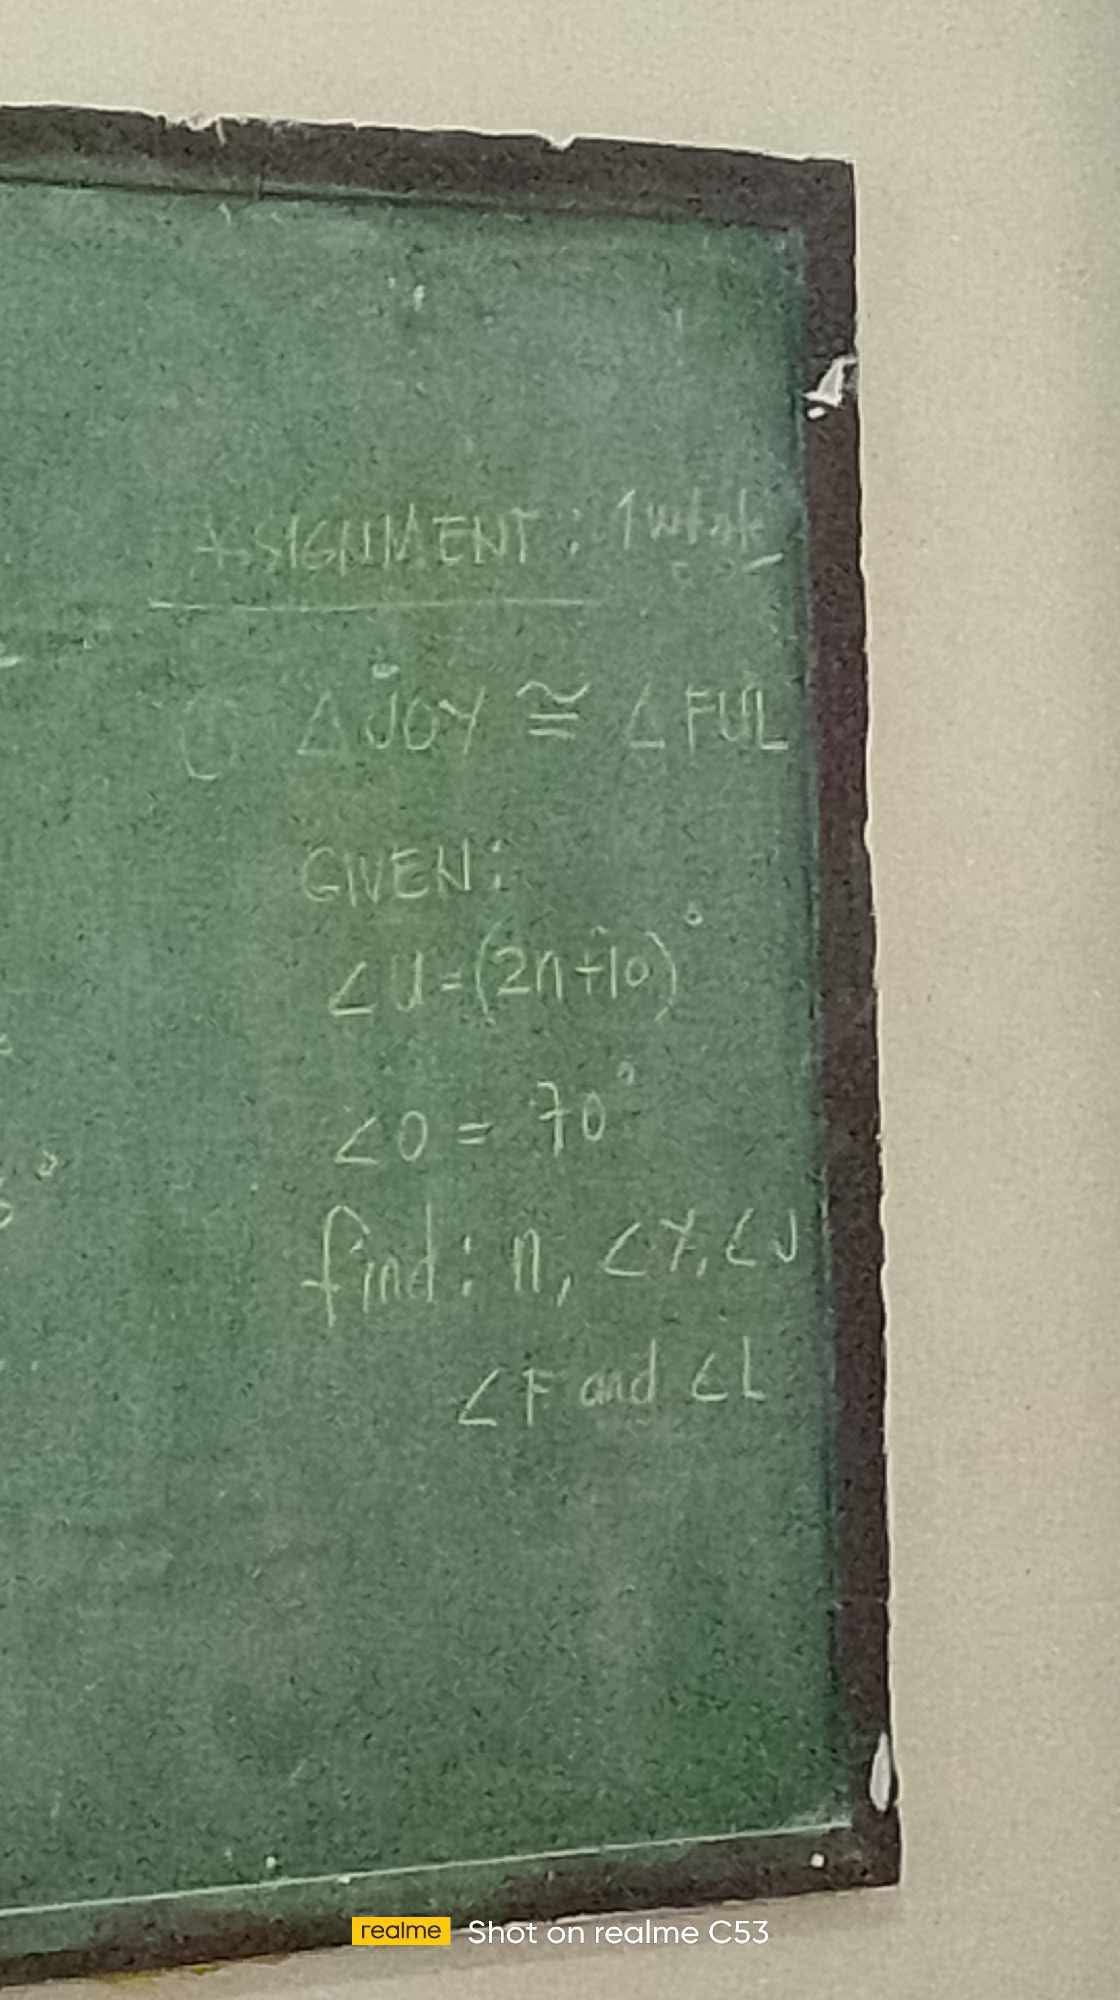 ASSIGNMENT : 1 whole
① △ JOY ≅ △ FUL
GIVEN:
∠U=(2n+10)°
∠O = 70°
find: n, ∠Y, ∠J
∠F and ∠L
realme Shot on realme C53